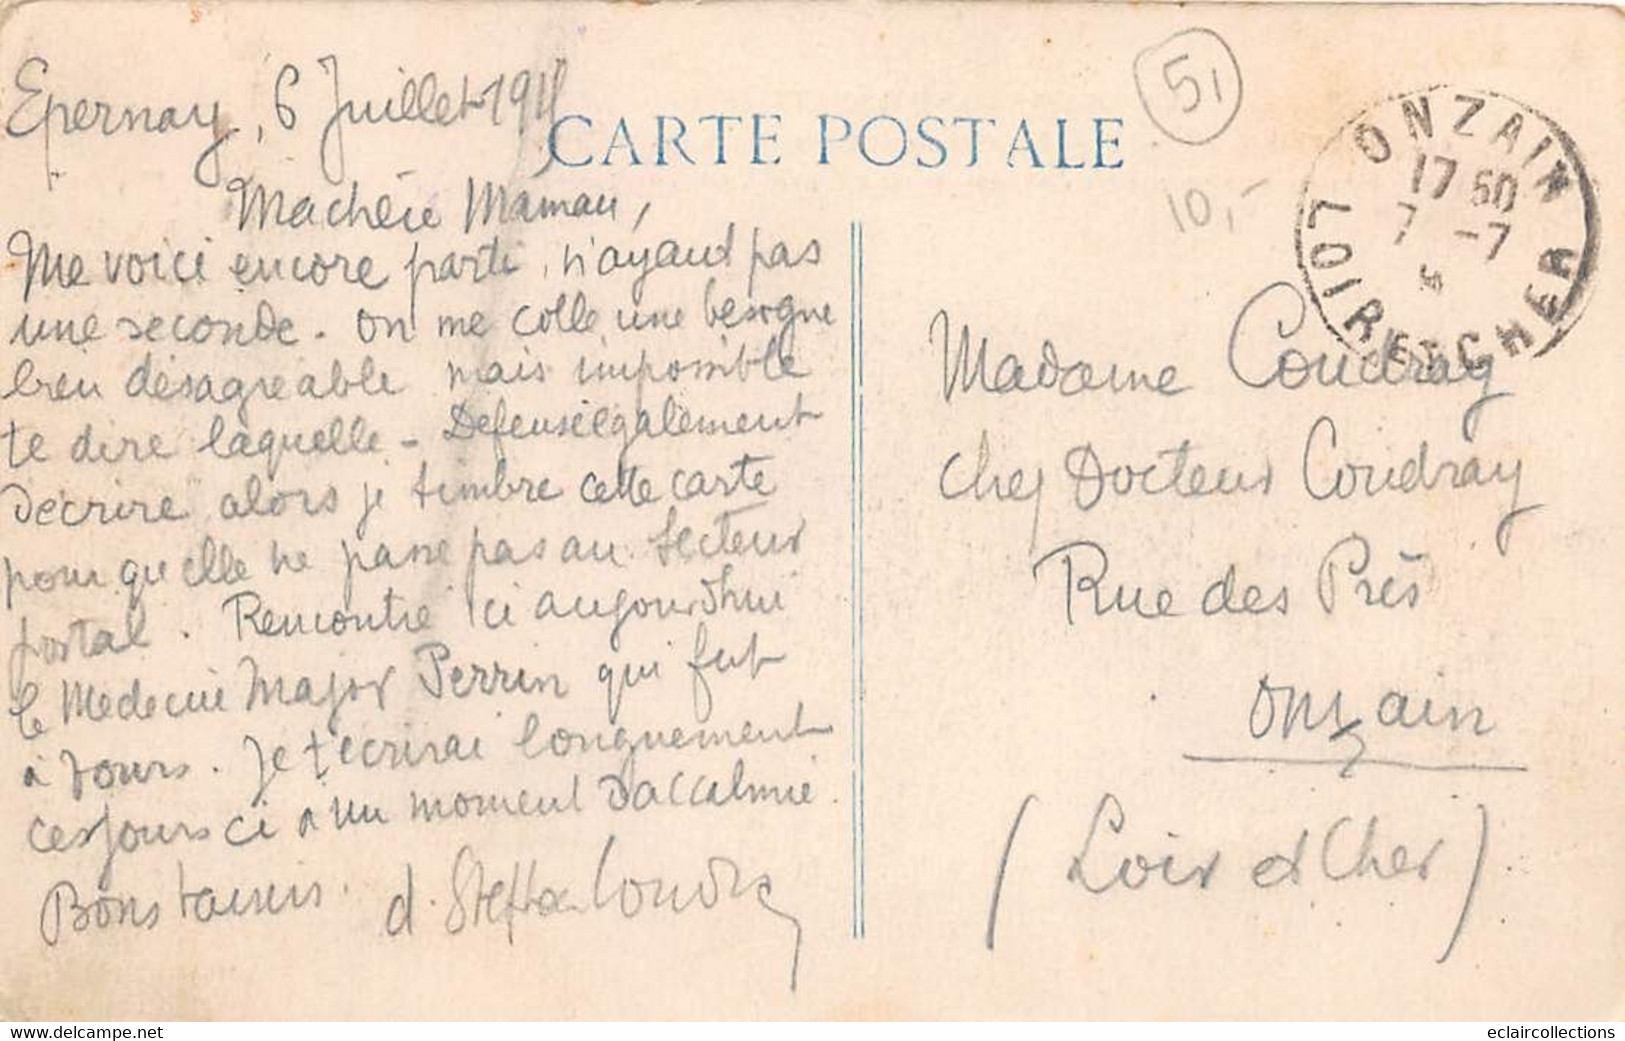 Epernay, 6 Juillet 191
CARTE POSTALE
51
10,-
ONZAIN
17 50
7 -7
LOIR ET CHER
Ma chère Maman,
Me voici encore parti, n'ayant pas
une seconde. On me colle une besogne
bien désagréable mais impossible
te dire laquelle - Défense également
décrire alors je timbre cette carte
pour qu'elle ne passe pas au secteur
postal. Rencontré ici aujourd'hui
le Médecin Major Perrin qui fut
à Tours. Je t'écrirai longuement
ces jours ci à un moment d'accalmie.
Bons baisers.
Madame Coudray
chez Docteur Coudray
Rue des Prés
Onzain
(Loir et Cher)
eclaircollections
delcampe.net